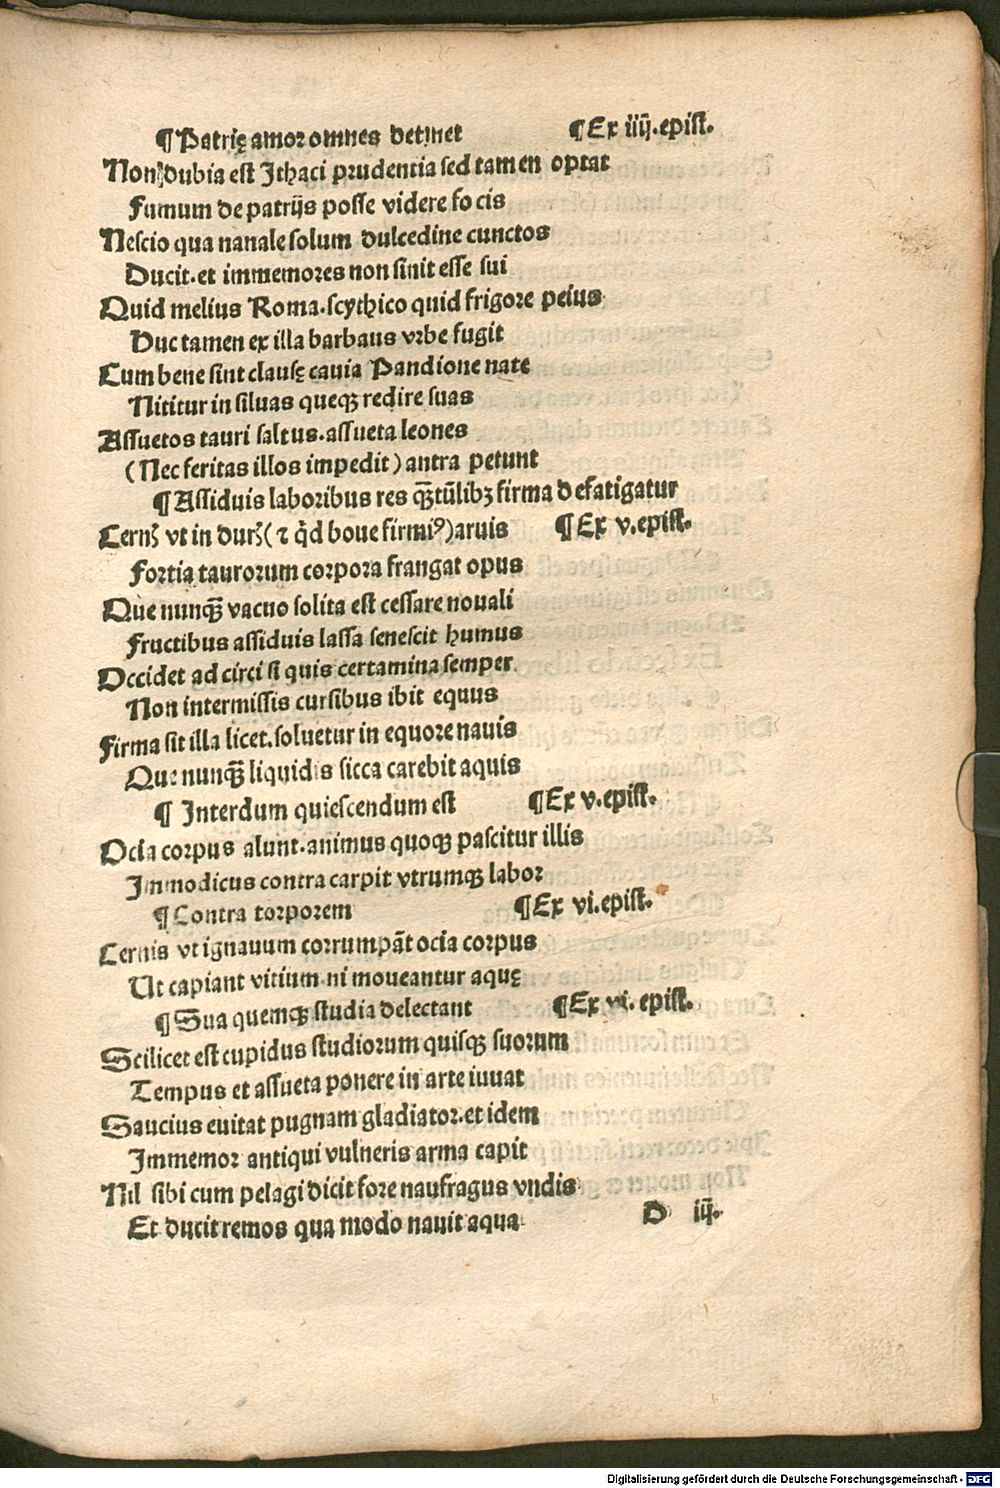 ¶ Patrię amor omnes detinet ¶ Ex iiij. epist.
Non dubia est Jthaci prudentia sed tamen optat
Fumum de patrijs posse videre focis
Nescio qua nanale solum dulcedine cunctos
Ducit. et immemores non sinit esse sui
Quid melius Roma. scythico quid frigore peius
Duc tamen ex illa barbaus vrbe fugit
Cum bene sint clausę cauia Pandione nate
Nititur in siluas queqꝫ redire suas
Assuetos tauri saltus. assueta leones
(Nec feritas illos impedit) antra petunt
¶ Assiduis laboribus res qꝫtūlibꝫ firma defatigatur
Cernꝭ vt in durꝭ (⁊ q̄d boue firmiꝰ) aruis ¶ Ex v. epist.
Fortia taurorum corpora frangat opus
Que nunqꝫ vacuo solita est cessare nouali
Fructibus assiduis lassa senescit humus
Occidet ad circi si quis certamina semper
Non intermissis cursibus ibit equus
Firma sit illa licet. soluetur in equore nauis
Que nunqꝫ liquidis sicca carebit aquis
¶ Interdum quiescendum est ¶ Ex v. epist.
Ocia corpus alunt. animus quoqꝫ pascitur illis
Jmmodicus contra carpit vtrumqꝫ labor
¶ Contra torporem ¶ Ex vi. epist.
Cernis vt ignauum corrumpāt ocia corpus
Ut capiant vitium ni moueantur aquę
¶ Sua quemqꝫ studia delectant ¶ Ex vi. epist.
Scilicet est cupidus studiorum quisqꝫ suorum
Tempus et assueta ponere in arte iuuat
Saucius euitat pugnam gladiator. et idem
Jmmemor antiqui vulneris arma capit
Nil sibi cum pelagi dicit fore naufragus vndis
Et ducit remos qua modo nauit aqua
D iij.
Digitalisierung gefördert durch die Deutsche Forschungsgemeinschaft - DFG